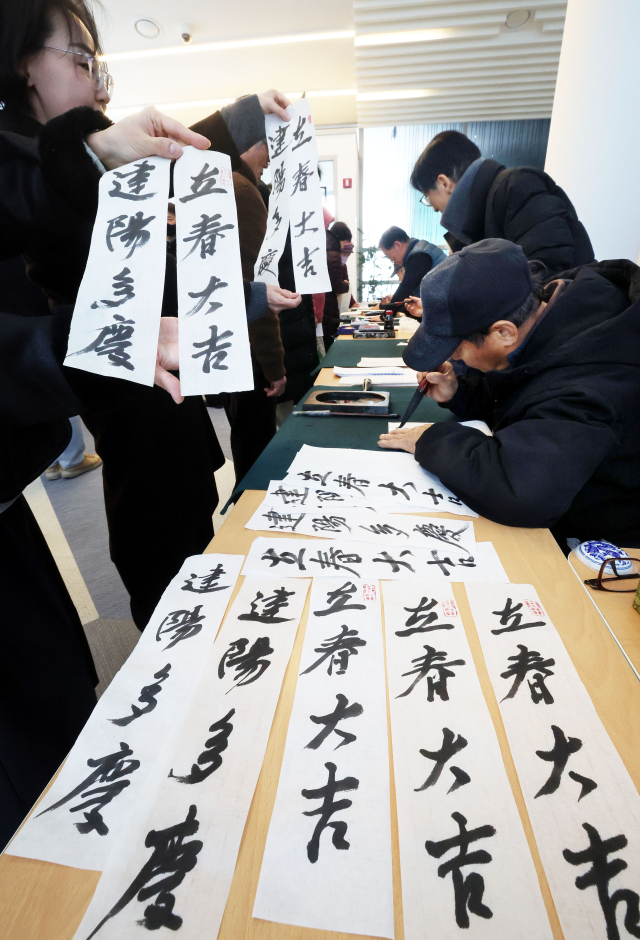 建陽多慶
立春大吉
建陽多慶
立春大吉
立春大吉
建陽多慶
建陽多慶
立春大吉
建陽多慶
建陽多慶
立春大吉
立春大吉
立春大吉